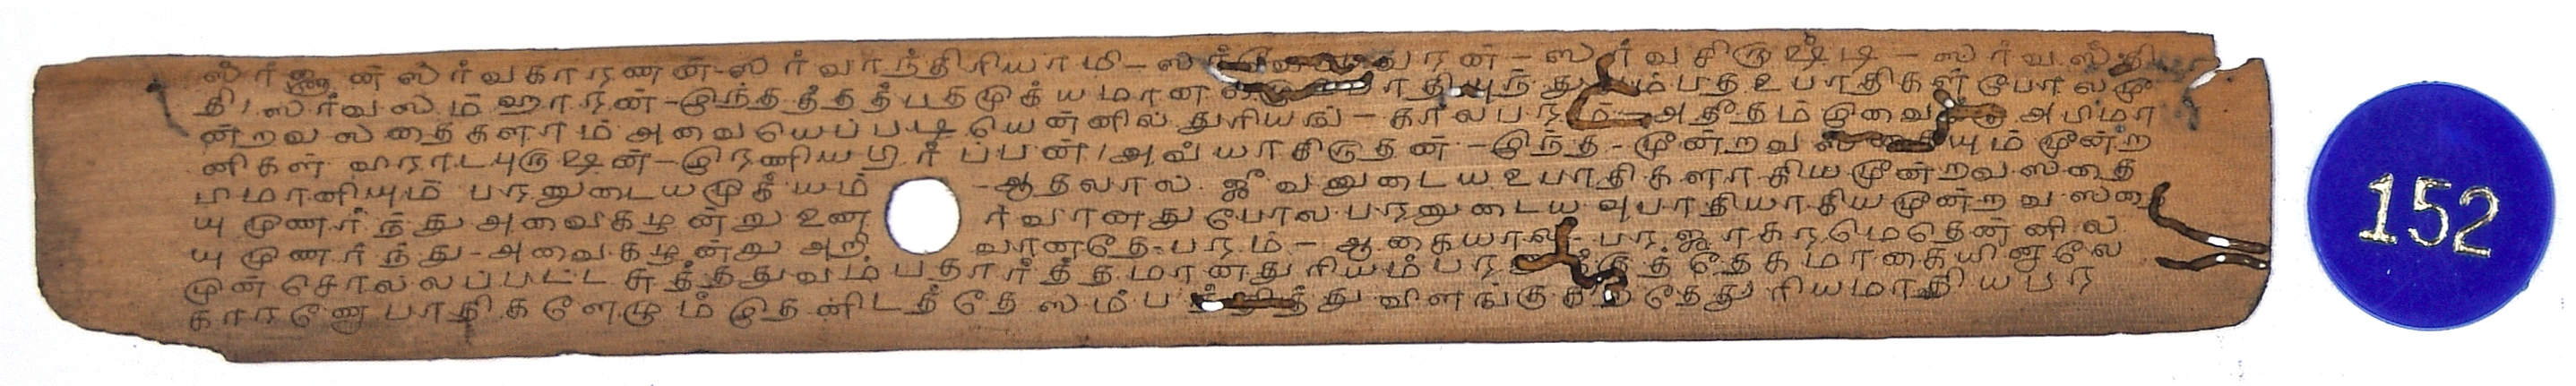 ஸர்வஜ்ஞன் ஸர்வகாரணன்-ஸர்வாந்திரியாமி-ஸர்வேஸ்வரன்-ஸர்வசிருஷ்டி-ஸர்வஸ்தி
தி/ஸர்வஸம்ஹாரன்-இந்தத்தத்பதமுக்யமான பாதியுந்து ம்பத உபாதிகள் போலமூ
ன்றவஸ்தைகளாம் அவையெப்படியென்னில் துரியங்-காலபரம்-அதீதம் இவை அபிமா
னிகள் வராடபுருஷன்-இரணியகர்ப்பன்/அவ்யாகிருதன்-இந்த-மூன்றவஸ்தையும் மூன்ற
பிமானியும் பரனுடையமுக்யம் -ஆதலால் ஜீவனுடைய உபாதிகளாகியமூன்றவஸ்தை
யுமுணர்ந்து அவைகழன்று உண ர்வானதுபோல பரனுடைய வுபாதியாகியமூன்றவஸ்தை
யுமுணர்ந்து-அவைகழன்று அறி வானதே-பரம்-ஆகையால்-பரஜாகரமெதென்னில்
முன்சொல்லப்பட்ட சுத்தத்துவம்பதார்த்தமானதுரியம்பர த்குத்தேகமாகையினாலே
காரணோபாதிகளேழும் இதனிடத்தே ஸம்ப ந்தித்து விளங்குகிறதேதுரியமாதியபர